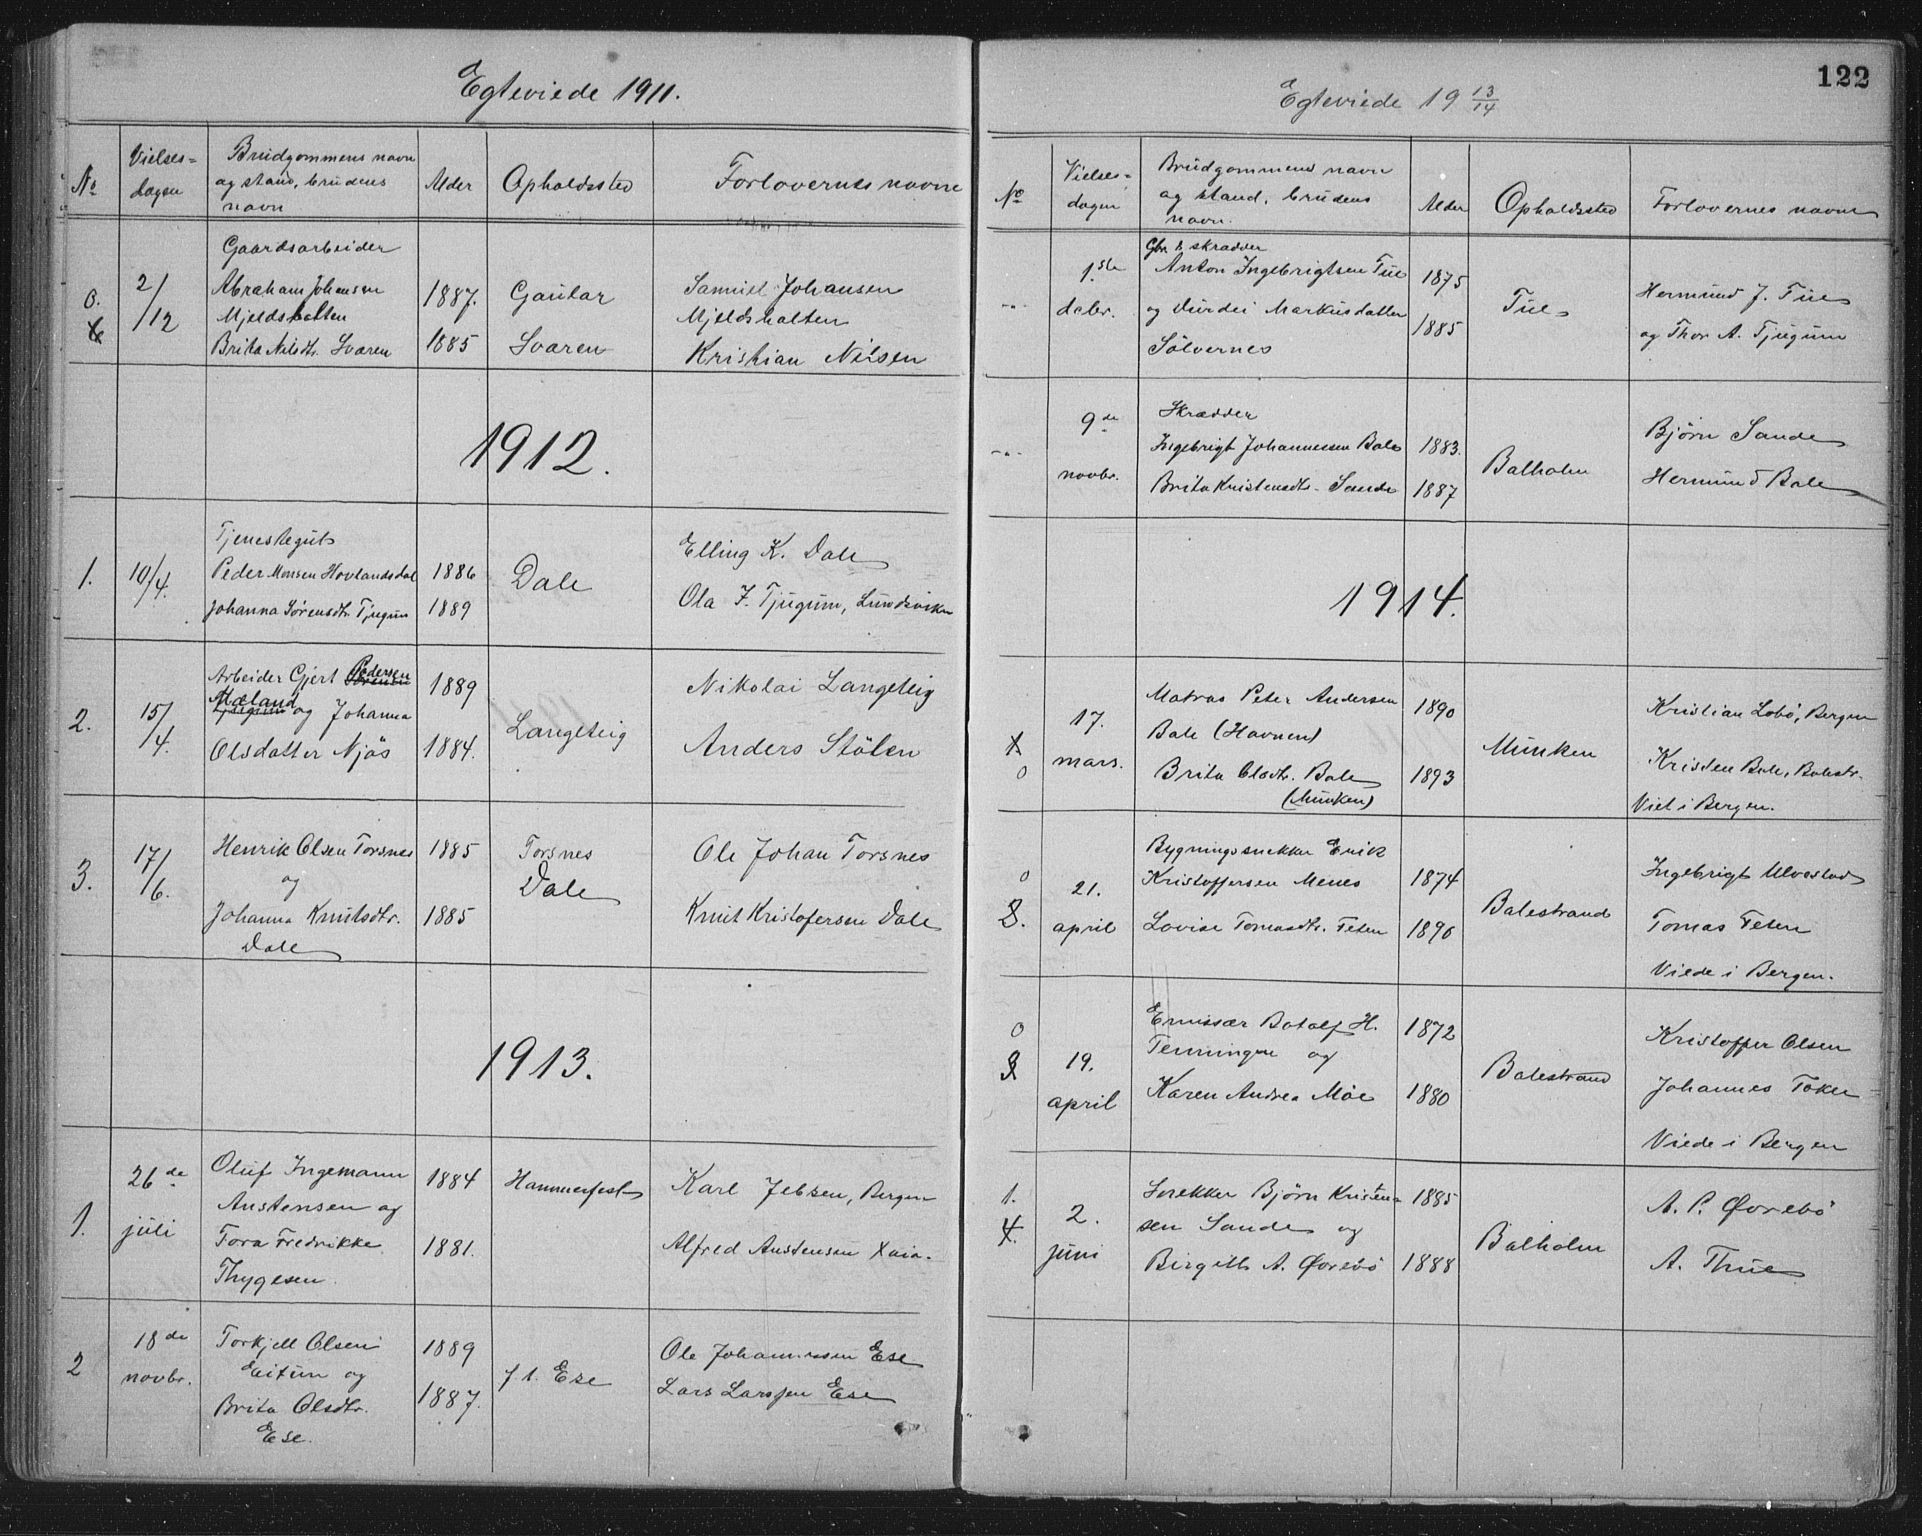 Egteviede 1911.
No
Vielses=
dagen
Brudgommens navn
og stand, brudens
navn
Alder
Opholdssted
Forlovernes navne
0.
2/12
Gaardsarbeider
Abraham Johansen 1887. Gaular Samuel Johansen
Mjeldshalten Mjeldshalten
Brita Nilsdtr. Sværen 1885 Sværen Kristian Nilsen
1912.
Tjenestegut
1. 10/4. Peder Monsen Hovlandsdal 1886 Dale Elling K. Dale
Johanna Sørensdtr. Tjugum 1889 Ola J. Tjugum, Lundsviken
Arbeider Gjert Pedersen 1889 Nikolai Langeteig
2. 15/4. Mæland og Johanna Langeteig
Olsdatter Njøs 1884. Anders Stølen
3. 17/6. Henrik Olsen Torsnes 1885 Torsnes Ole Johan Torsnes
og Dale
Johanna Knutsdtr. 1885 Knut Kristofersen Dale
Dale
1913.
1. 26de juli Oluf Ingemann 1884 Hammerfest Karl Jebsen, Bergen
Austensen og
Tora Fredrikke 1881. Alfred Austensen
Thygesen.
2 18de novbr. Torkjell Olsen 1889 Ole Johannessen Ese
Eitun og f 1. Ese
Brita Olsdtr. 1887. Lars Larssen Ese
Ese.
122
Egteviede 19 13/14
No
Vielses-
dagen
Brudgommens navn
og stand, brudens
navn.
Alder
Opholdssted
Forlovernes navne
Gbr & skrædder
-"- 1ste Anton Ingebrigtsen Tue 1875 Tue Hermund J. Tue
og Durdei Markusdatter 1885 og Thor A. Tjugum
Sølvernes
Skrædder
-"- 9de novbr. Ingebrigt Johannessen Bale 1883. Balholm Bjørn Sande
Brita Kristensdtr. Sande 1887 Hermund Bale
1914.
17. mars. Matros Peter Andersen 1890 Kristian Lobö, Bergen
0 Bale (Havnen) Munken
Brita Olsdtr. Bale 1893 Kristen Bale, Balestr.
(Munken) Viet i Bergen.
Bygningssnekker Erik
0 21. april Kristoffersen Menes 1874 Balestrand Ingebrigt Ulvestad
Lovise Tomasdtr. Feten 1890 Tomas Feten
Viede i Bergen.
0 19. april Emissær Botolf H. 1872 Balestrand Kristoffer Olsen
Tenningen og
Karen Andrea Moe 1880 Johannes Token
Viede i Bergen
1. 2. juni Snekker Bjørn Kristen= 1885 Balholm A. P. Øvrebö
4. sen Sande og
Birgitte A. Øvrebö 1888 A. Thue